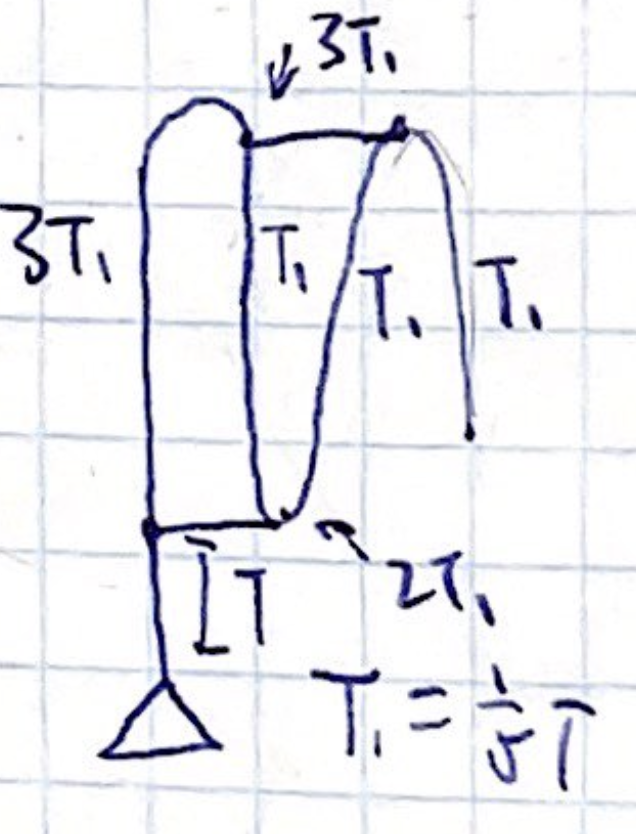 3T₁
3T₁
T₁
T₁
T₁
T
2T₁
T₁ = 1/5 T